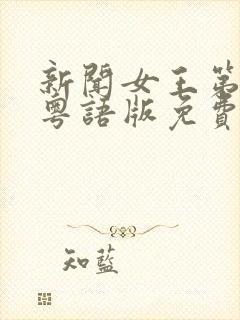 新聞女王第
粵語版免費
知藍